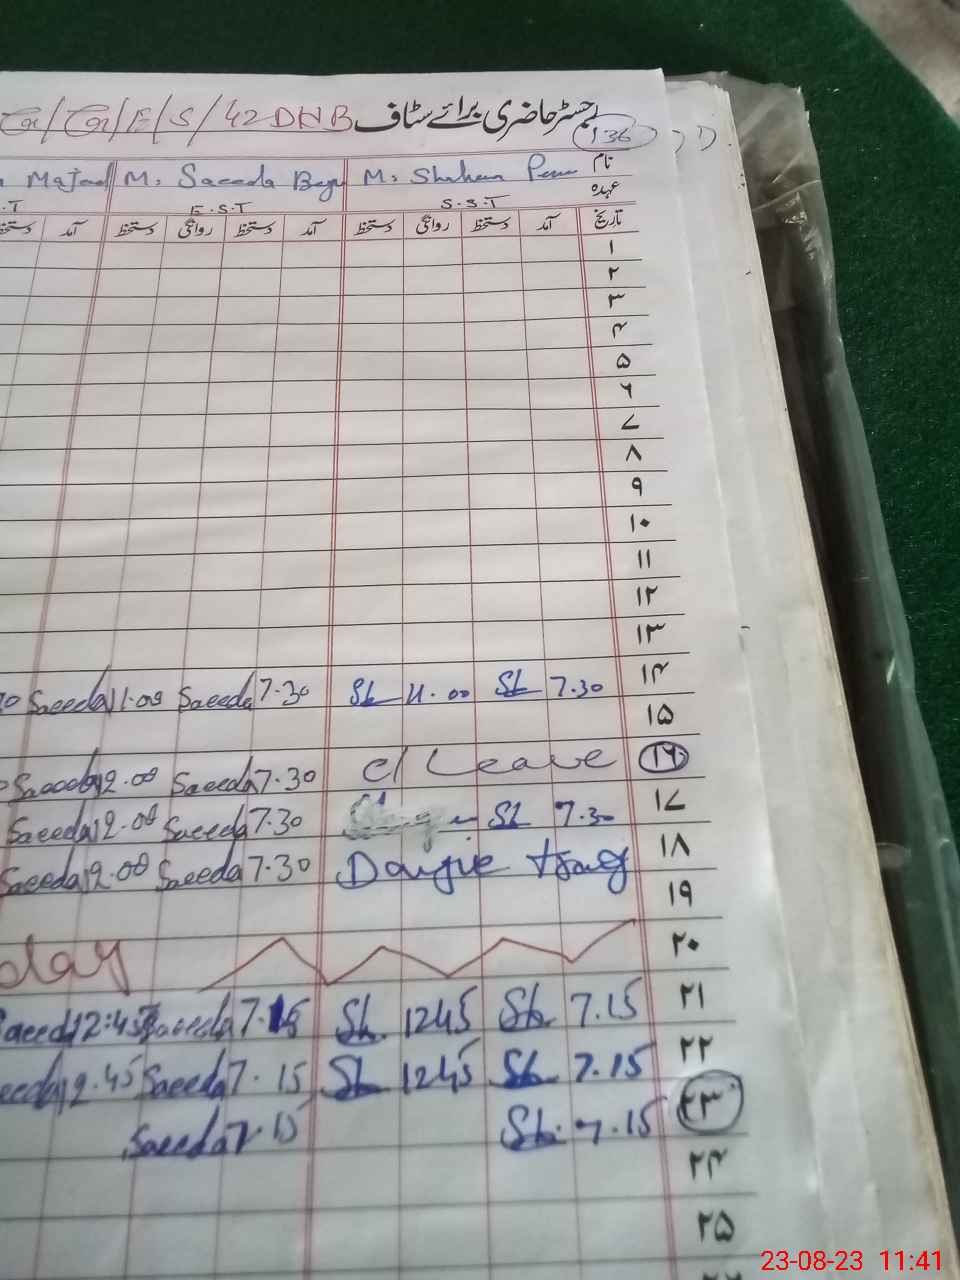 رجسٹر حاضری برائے سٹاف /E/S/42DNB
136
نام M. Shaheen M. Saeeda Majad
عہدہ
S.S.T E.S.T
تاریخ آمد دستخط روانگی دستخط آمد دستخط روانگی دستخط آمد دستخط
۱
۲
۳
۴
۵
۶
۷
۸
۹
۱۰
۱۱
۱۲
۱۳
۱۴ 7.30 Sh 11.00 Sh 7.30 Saeeda 11.00 Saeeda
۱۵
۱۶ C/ Leave 7.30 Saeeda 12.00 Saeeda
۱۷ 7.30 Sh 7.30 Saeeda 12.00 Saeeda
۱۸ 7.30 Saeeda 12.00 Saeeda
۱۹
۲۰ day
۲۱ 7.15 Sh 1245 Sh 7.15 Saeeda 12:45 Saeeda
۲۲ 7.15 Sh 1245 Sh 7.15 Saeeda 12.45 eeda
۲۳ 7.15 Sh 7.15 Saeeda
۲۴
۲۵
23-08-23 11:41